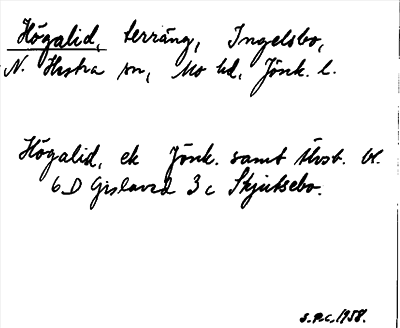 Högalid, terräng, Ingelsbo,
N. Hestra sn, Mo hd, Jönk. l.
Högalid, ek Jönk. samt Övst. bl.
6 D Gislaved 3 c Skjutsebo.
1958.